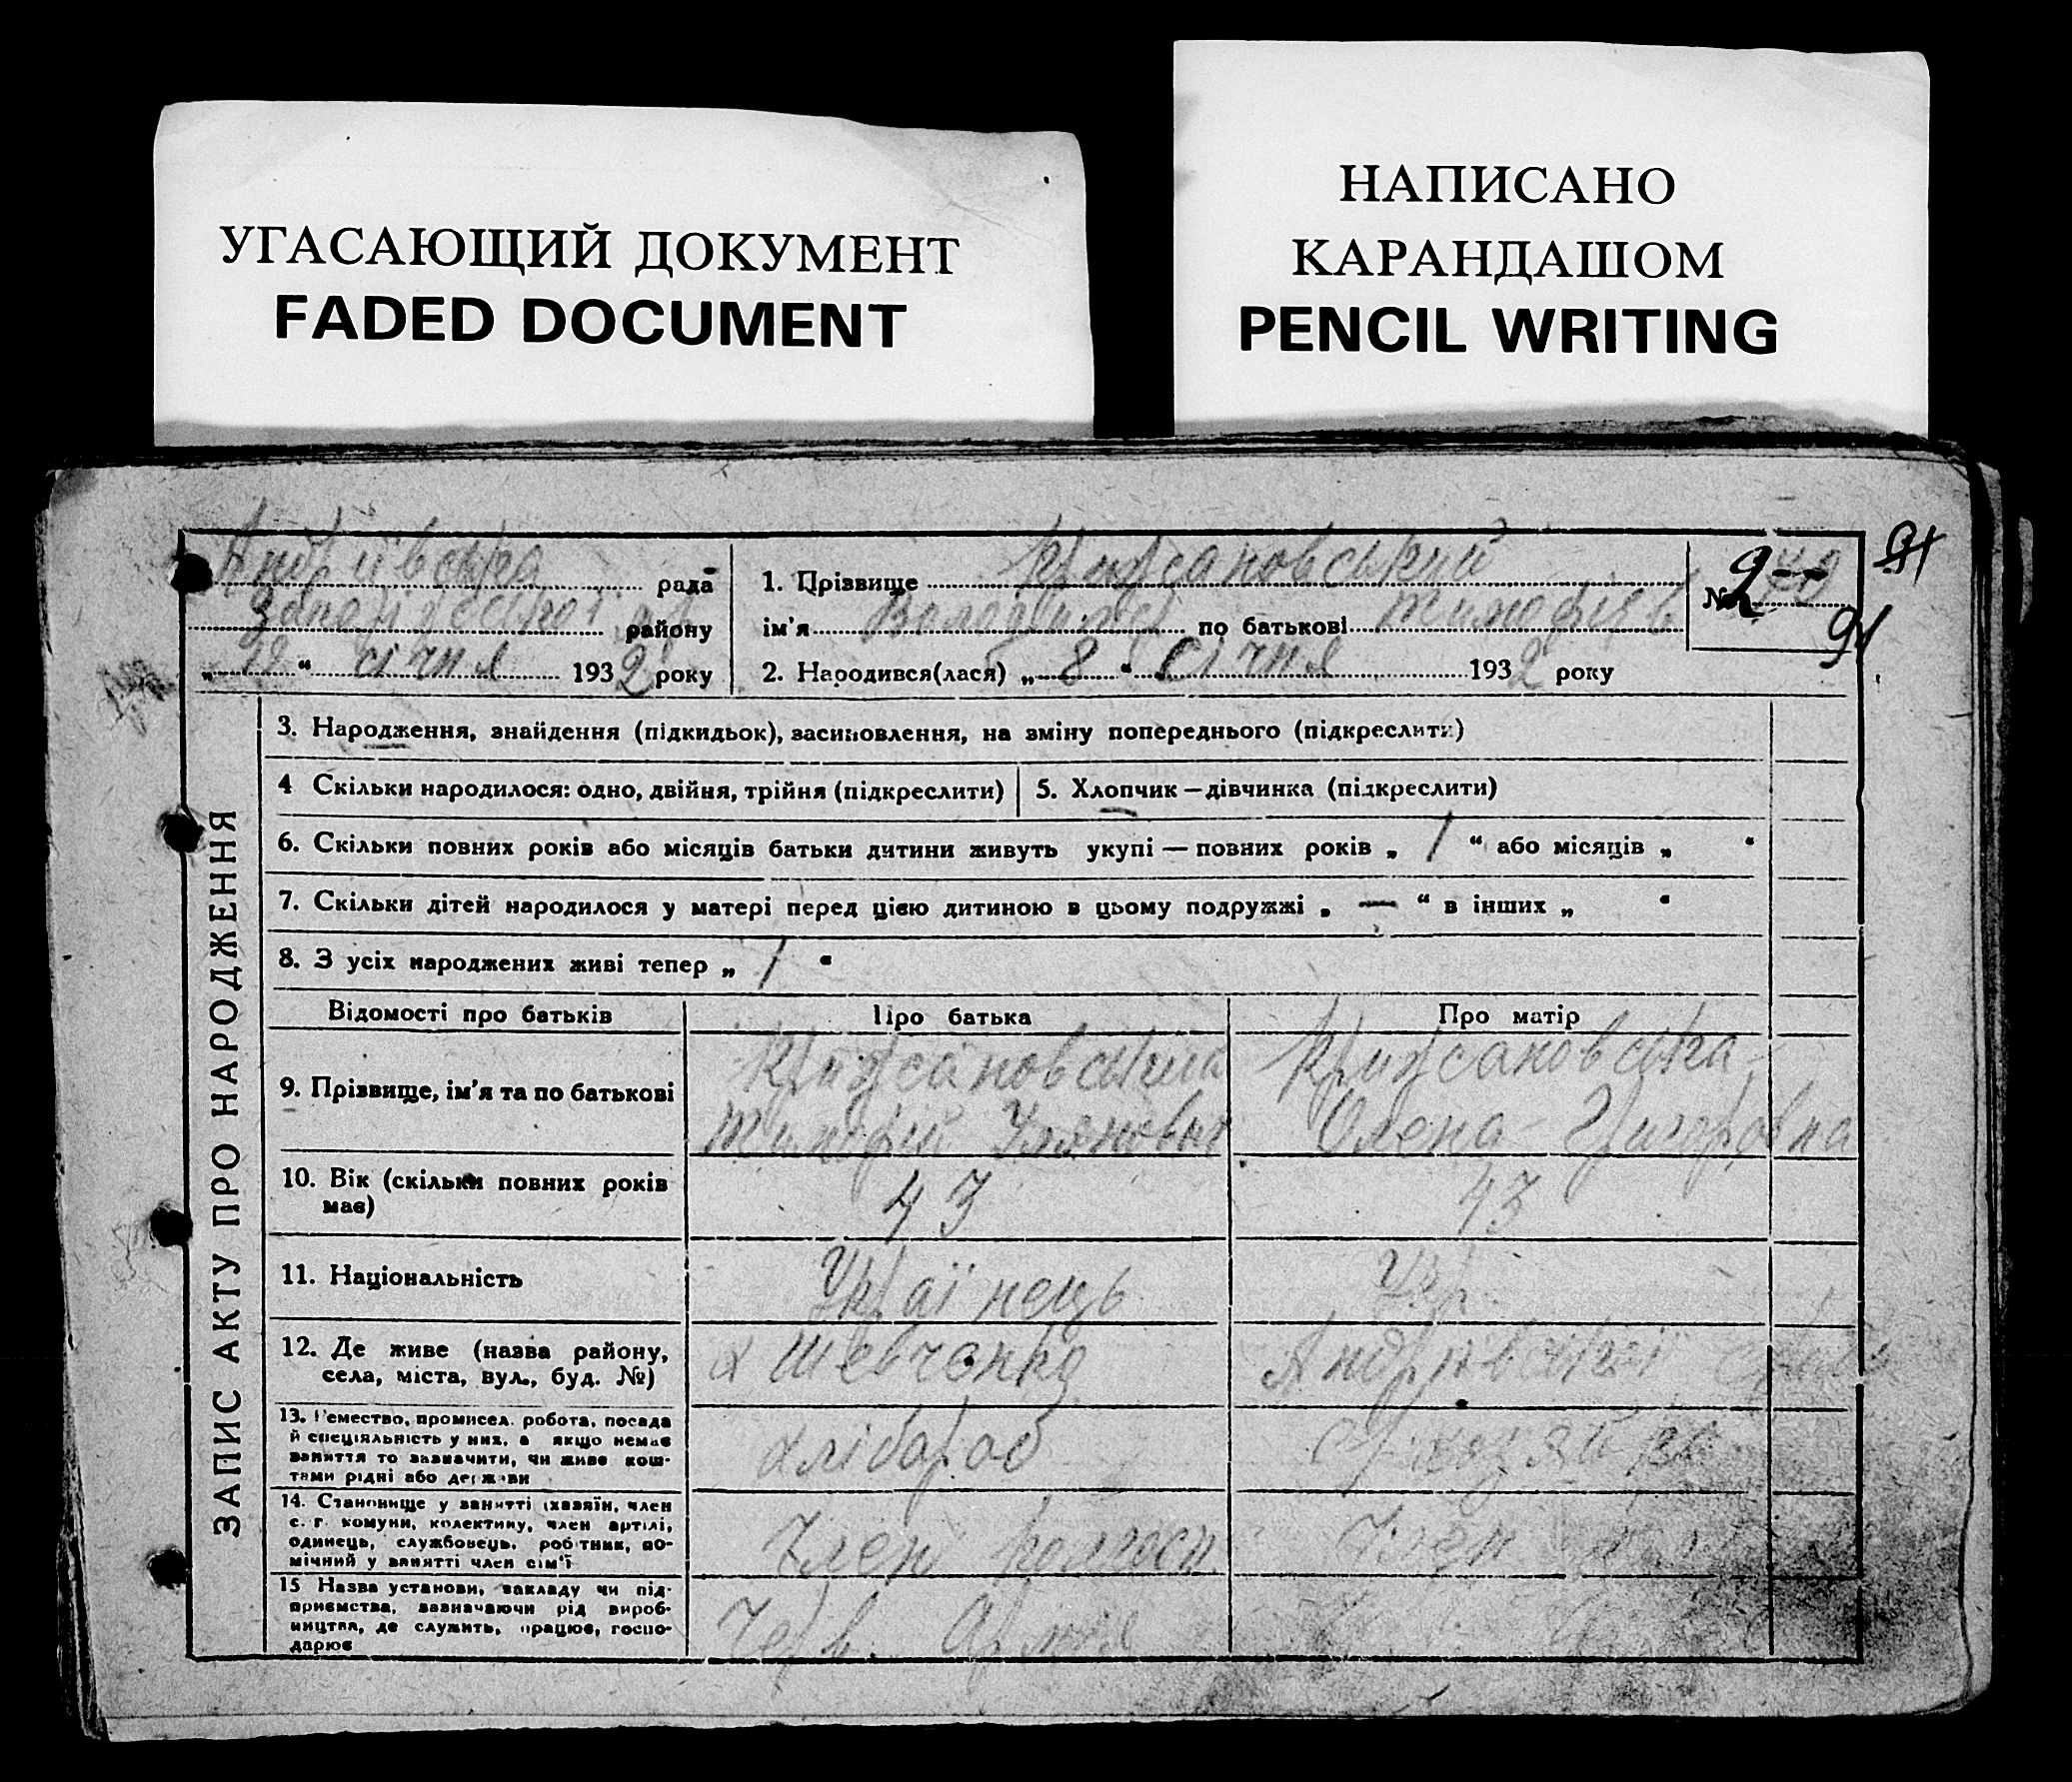 УГАСАЮЩИЙ ДОКУМЕНТ
FADED DOCUMENT
НАПИСАНО
КАРАНДАШОМ
PENCIL WRITING
Андріївська рада
району
„12“ січня 1932 року
1. Прізвище Крижсановський
ім'я Володимир по батькові Тимофієв
2. Народився(лася) „8“ Січня 1932 року
№ 2
91
91
ЗАПИС АКТУ ПРО НАРОДЖЕННЯ
3. Народження, знайдення (підкидьок), засиновлення, на зміну попереднього (підкреслити)
4 Скільки народилося: одно, двійня, трійня (підкреслити)
5. Хлопчик — дівчинка (підкреслити)
6. Скільки повних років або місяців батьки дитини живуть укупі — повних років „ / “ або місяців „ “
7. Скільки дітей народилося у матері перед цією дитиною в цьому подружжі „ — “ в інших „ “
8. З усіх народжених живі тепер „ / “
Відомості про батьків
Про батька
Про матір
9. Прізвище, ім'я та по батькові
Крижсановський
Тимофій
Крижсановська
Олена Григоровна
10. Вік (скільки повних років
має)
43
43
11. Національність
Українець
Укр.
12. Де живе (назва району,
села, міста, вул., буд. №)
х Шевченко
Андріївської
13. Ремество, промисел, робота, посада
й спеціяльність у них, а якщо немає
заняття то зазначити, чи живе кош-
тами рідні або держави
хлібороб
14. Становище у занятті (хазяїн, член
с. г. комуни, колективу, член артілі,
одинець, службовець, робітник, по-
мічний у занятті член сім'ї
Член колгосп
Член
15 Назва установи, закладу чи під-
приємства, зазначаючи рід вироб-
ництва, де служить, працює, госпо-
дарює
Черв. Армія